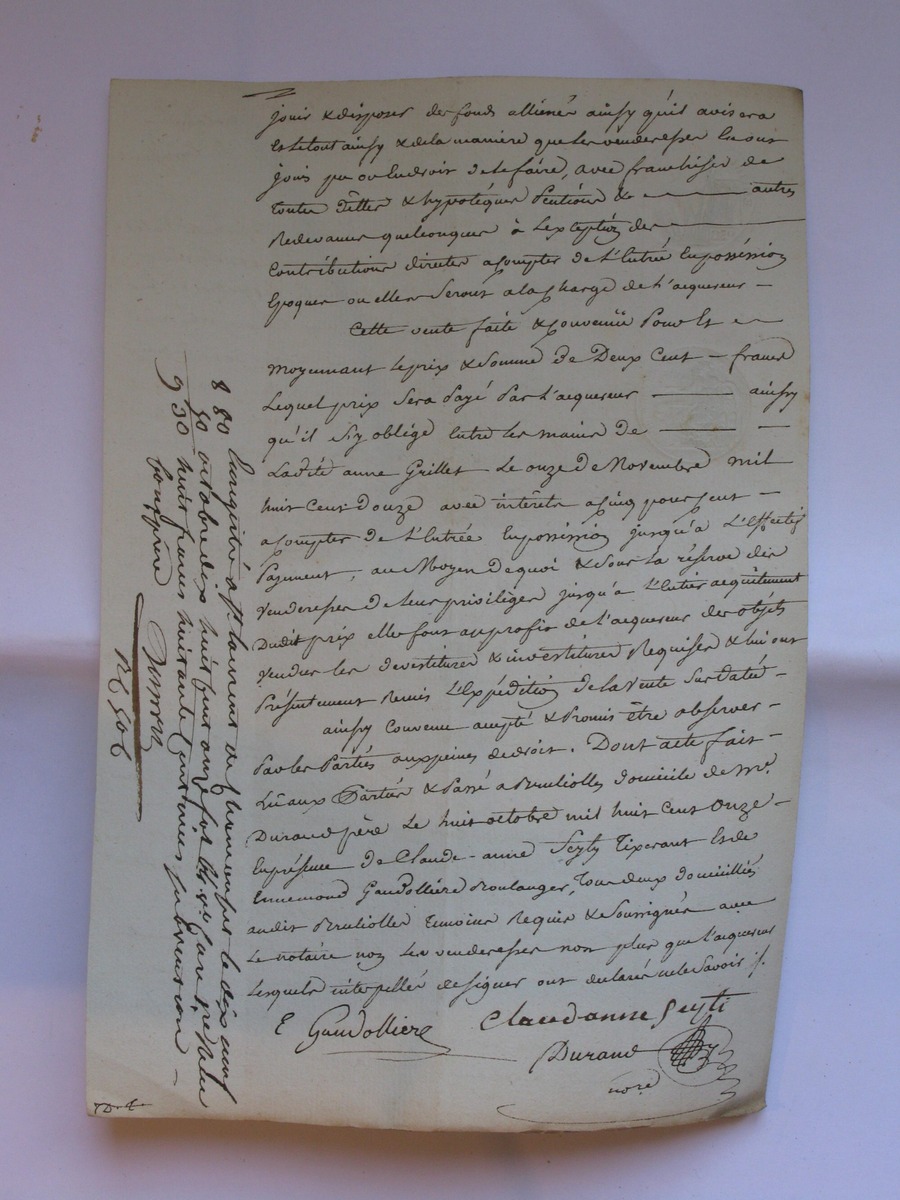 jouir & disposer des fonds alliénés ainsy qu'il avisera
Et le tout ainsy & de la maniere que les venderesses En ont
joui pu ou Eu droit de le faire, avec franchise de
toutes dettes & hypotéques Pentions & autres
Redevances quelconques à L'exception des
Contributions directes a compter de L'Entrée En possession
Epoques ou elles Seront a la charge de l'acquereur
Cette vente faite & convenue Pour Et
moyennant le prix & Somme de Deux Cent francs
Lequel prix Sera Payé Par L'acquereur ainsy
qu'il s'y oblige Entre les mains de
Ladite anne Grillet Le onze de Novembre mil
huit Cent Douze avec intérêts a cinq pour cent
a compter de L'Entrée En possession jusqu'a L'Effectif
Payement, au Moyen De quoi & Sous la réserve des
Venderesses De leur privilèges jusqu'à L'Entier acquittement
Dudit prix elles font au profit de l'acquereur des objets
vendus les devestitures & investitures Requises & lui ont
Présentement Remis L'Expédition de la vente Sus datée
ainsy convenu accepté & Promis être observer
Par les Parties aux peines de droit. Dont acte fait
Lû aux Parties & Passé a Brulioles domicile de Me.
Durand père Le huit octobre mil huit Cent Onze
En présence de Claude-anne Seyty Tixerant Et de
Ennemond Gaudollière Boulanger, Tous deux domiciliés
audit Brulioles Temoins Requis & Soussignés avec
Le notaire non Les venderesses non plus que l'acquereur
Lesquels interpellés de signer ont declarés ne le Savoir ./.
E Gaudolliere
Claudanne Seyti
Durand
nore
Enregistré a St Laurent de Chamousset le dix neuf
8 80 octobre dix huit cent onze fol.
80
9 30 huit francs huitante centimes subvention
comprise